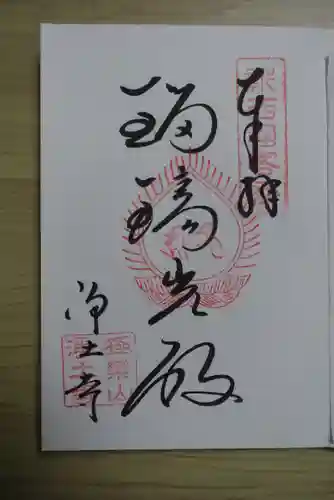 奉拝
瑠璃光殿
浄土寺
極楽山
浄土寺